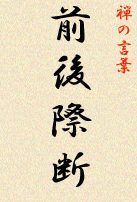 禅の言葉
前後際断